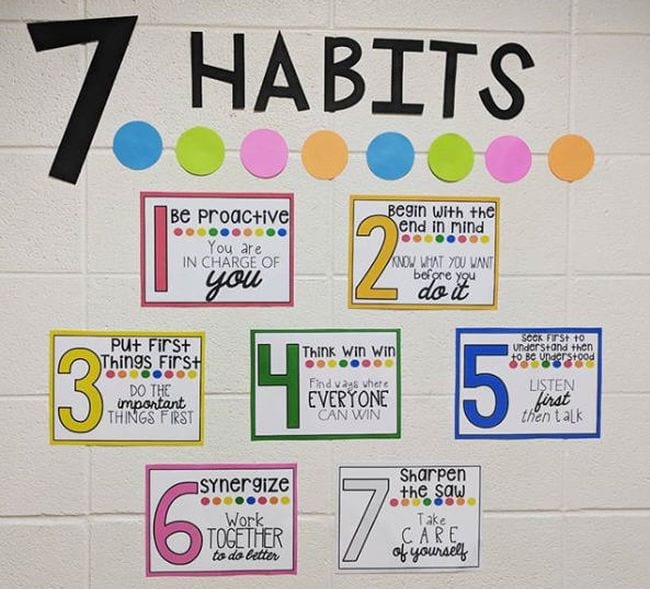 7 HABITS
1 Be Proactive
You are
IN CHARGE OF
you
2 Begin with the
end in mind
KNOW WHAT YOU WANT
before you
do it
3 Put First
Things First
DO THE
important
THINGS FIRST
4 Think Win Win
Find ways where
EVERYONE
CAN WIN
5 Seek First to
Understand then
to Be Understood
LISTEN
first
then talk
6 Synergize
Work
TOGETHER
to do better
7 Sharpen
the Saw
Take
CARE
of yourself